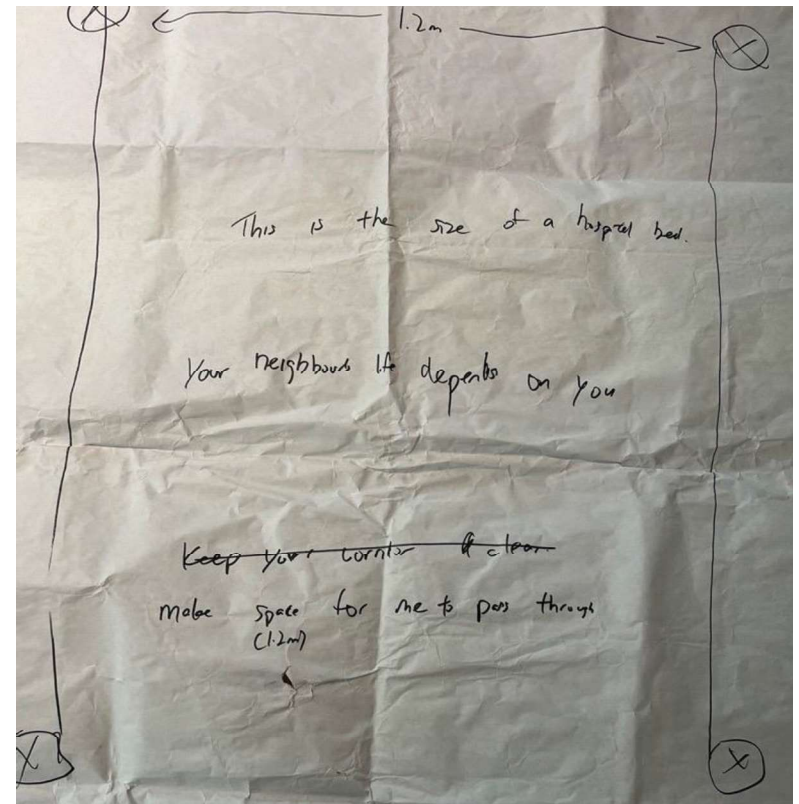 1.2m
This is the size of a hospital bed.
Your neighbours life depends on you
Keep your corridor clear
make space for me to pass through
(1.2m)